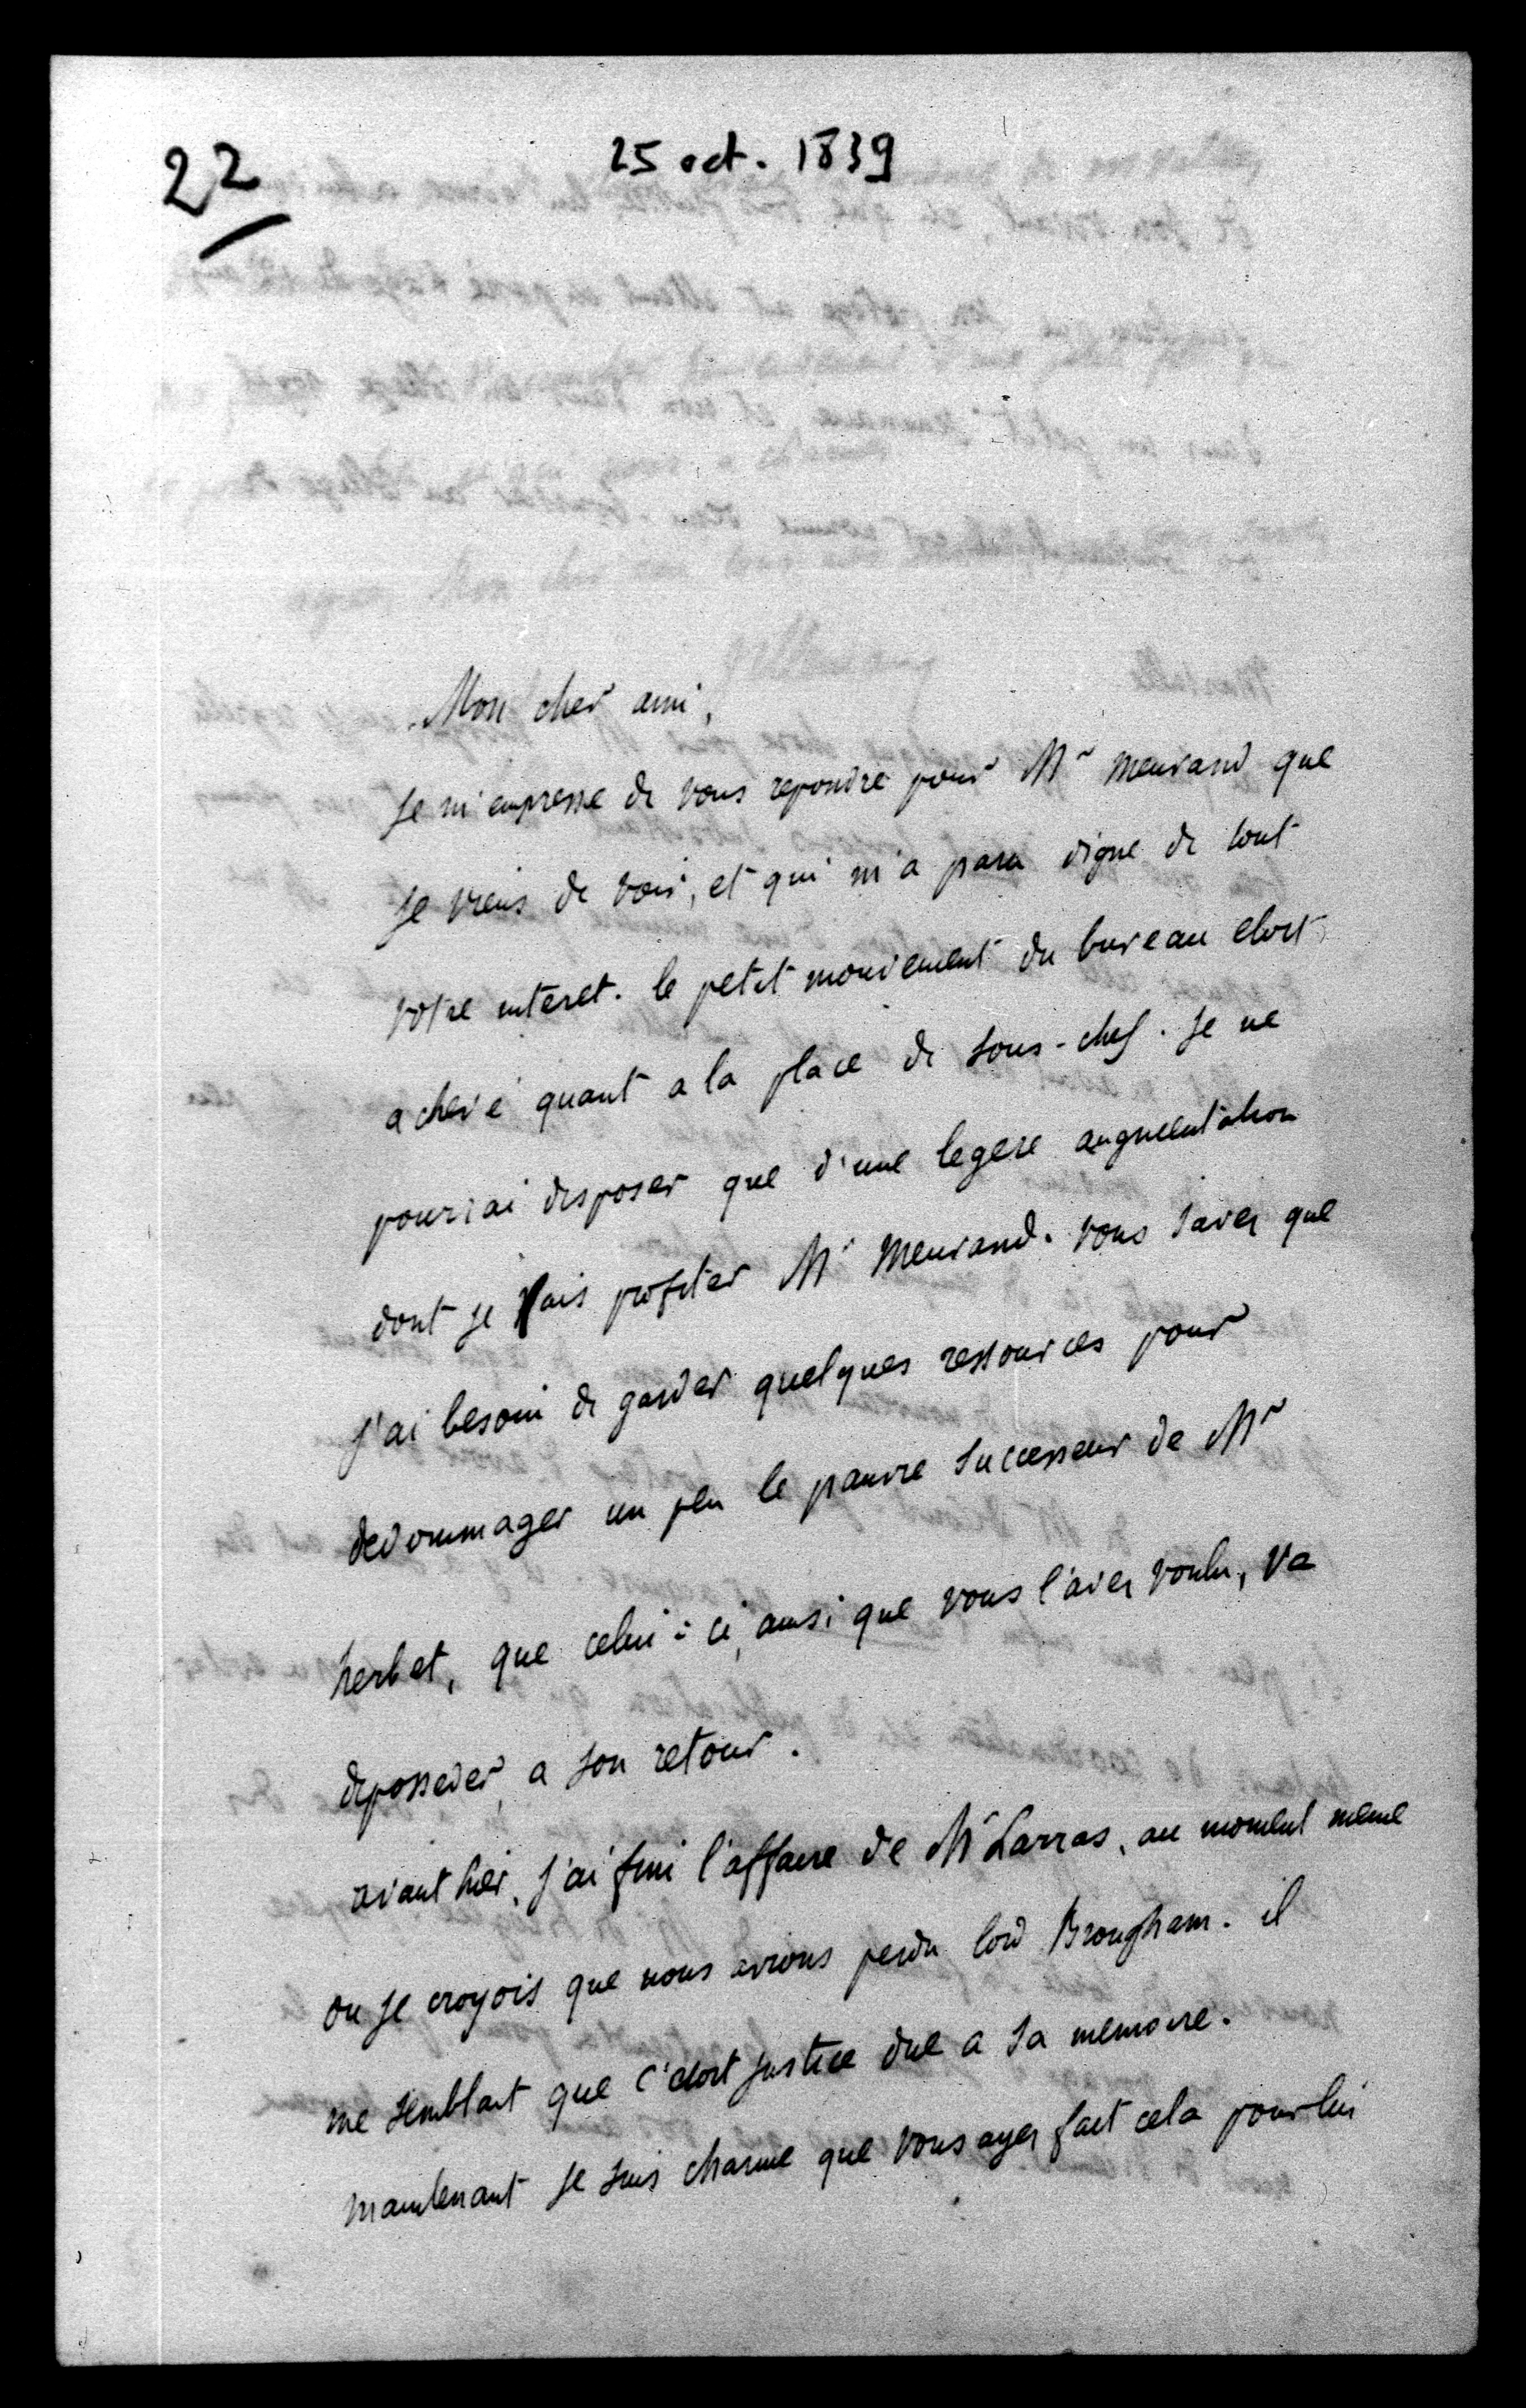 22
25 oct. 1839
Mon cher ami,
Je m'empresse de vous repondre pour Mr Meurand que
je viens de voir, et qui m'a paru digne de tout
votre interet. le petit mouvement du bureau etoit
achevé quant a la place de sous-chef. Je ne
pourrai disposer que d'une legere augmentation
dont je vais profiter Mr Meurand. vous savez que
j'ai besoin de garder quelques ressources pour
dedommager un peu le pauvre successeur de Mr
herbet, que celui-ci, ainsi que vous l'avez voulu, va
deposseder, a son retour.
avant hier, j'ai fini l'affaire de Mr Larras, au moment meme
ou je croyois que nous avions perdu lord Brougham. il
me semblait que c'etoit justice due a sa memoire.
maintenant je suis charmé que vous ayez fait cela pour lui